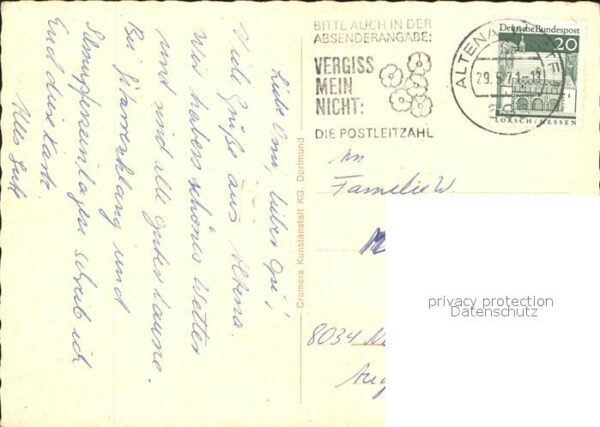 Liebe Omi, lieber Opi!
Viele Grüße aus Altena.
Wir haben schönes Wetter
und sind alle guter Laune.
Bei Gitarrenklang und
schreib ich
Euch diese Karte.
Alles Gute
Cramers Kunstanstalt KG, Dortmund
BITTE AUCH IN DER
ABSENDERANGABE:
VERGISS
MEIN
NICHT:
DIE POSTLEITZAHL
ALTENA
29.5.71
Deutsche Bundespost
20
LORSCH/HESSEN
An
Familie W
8034
privacy protection
Datenschutz